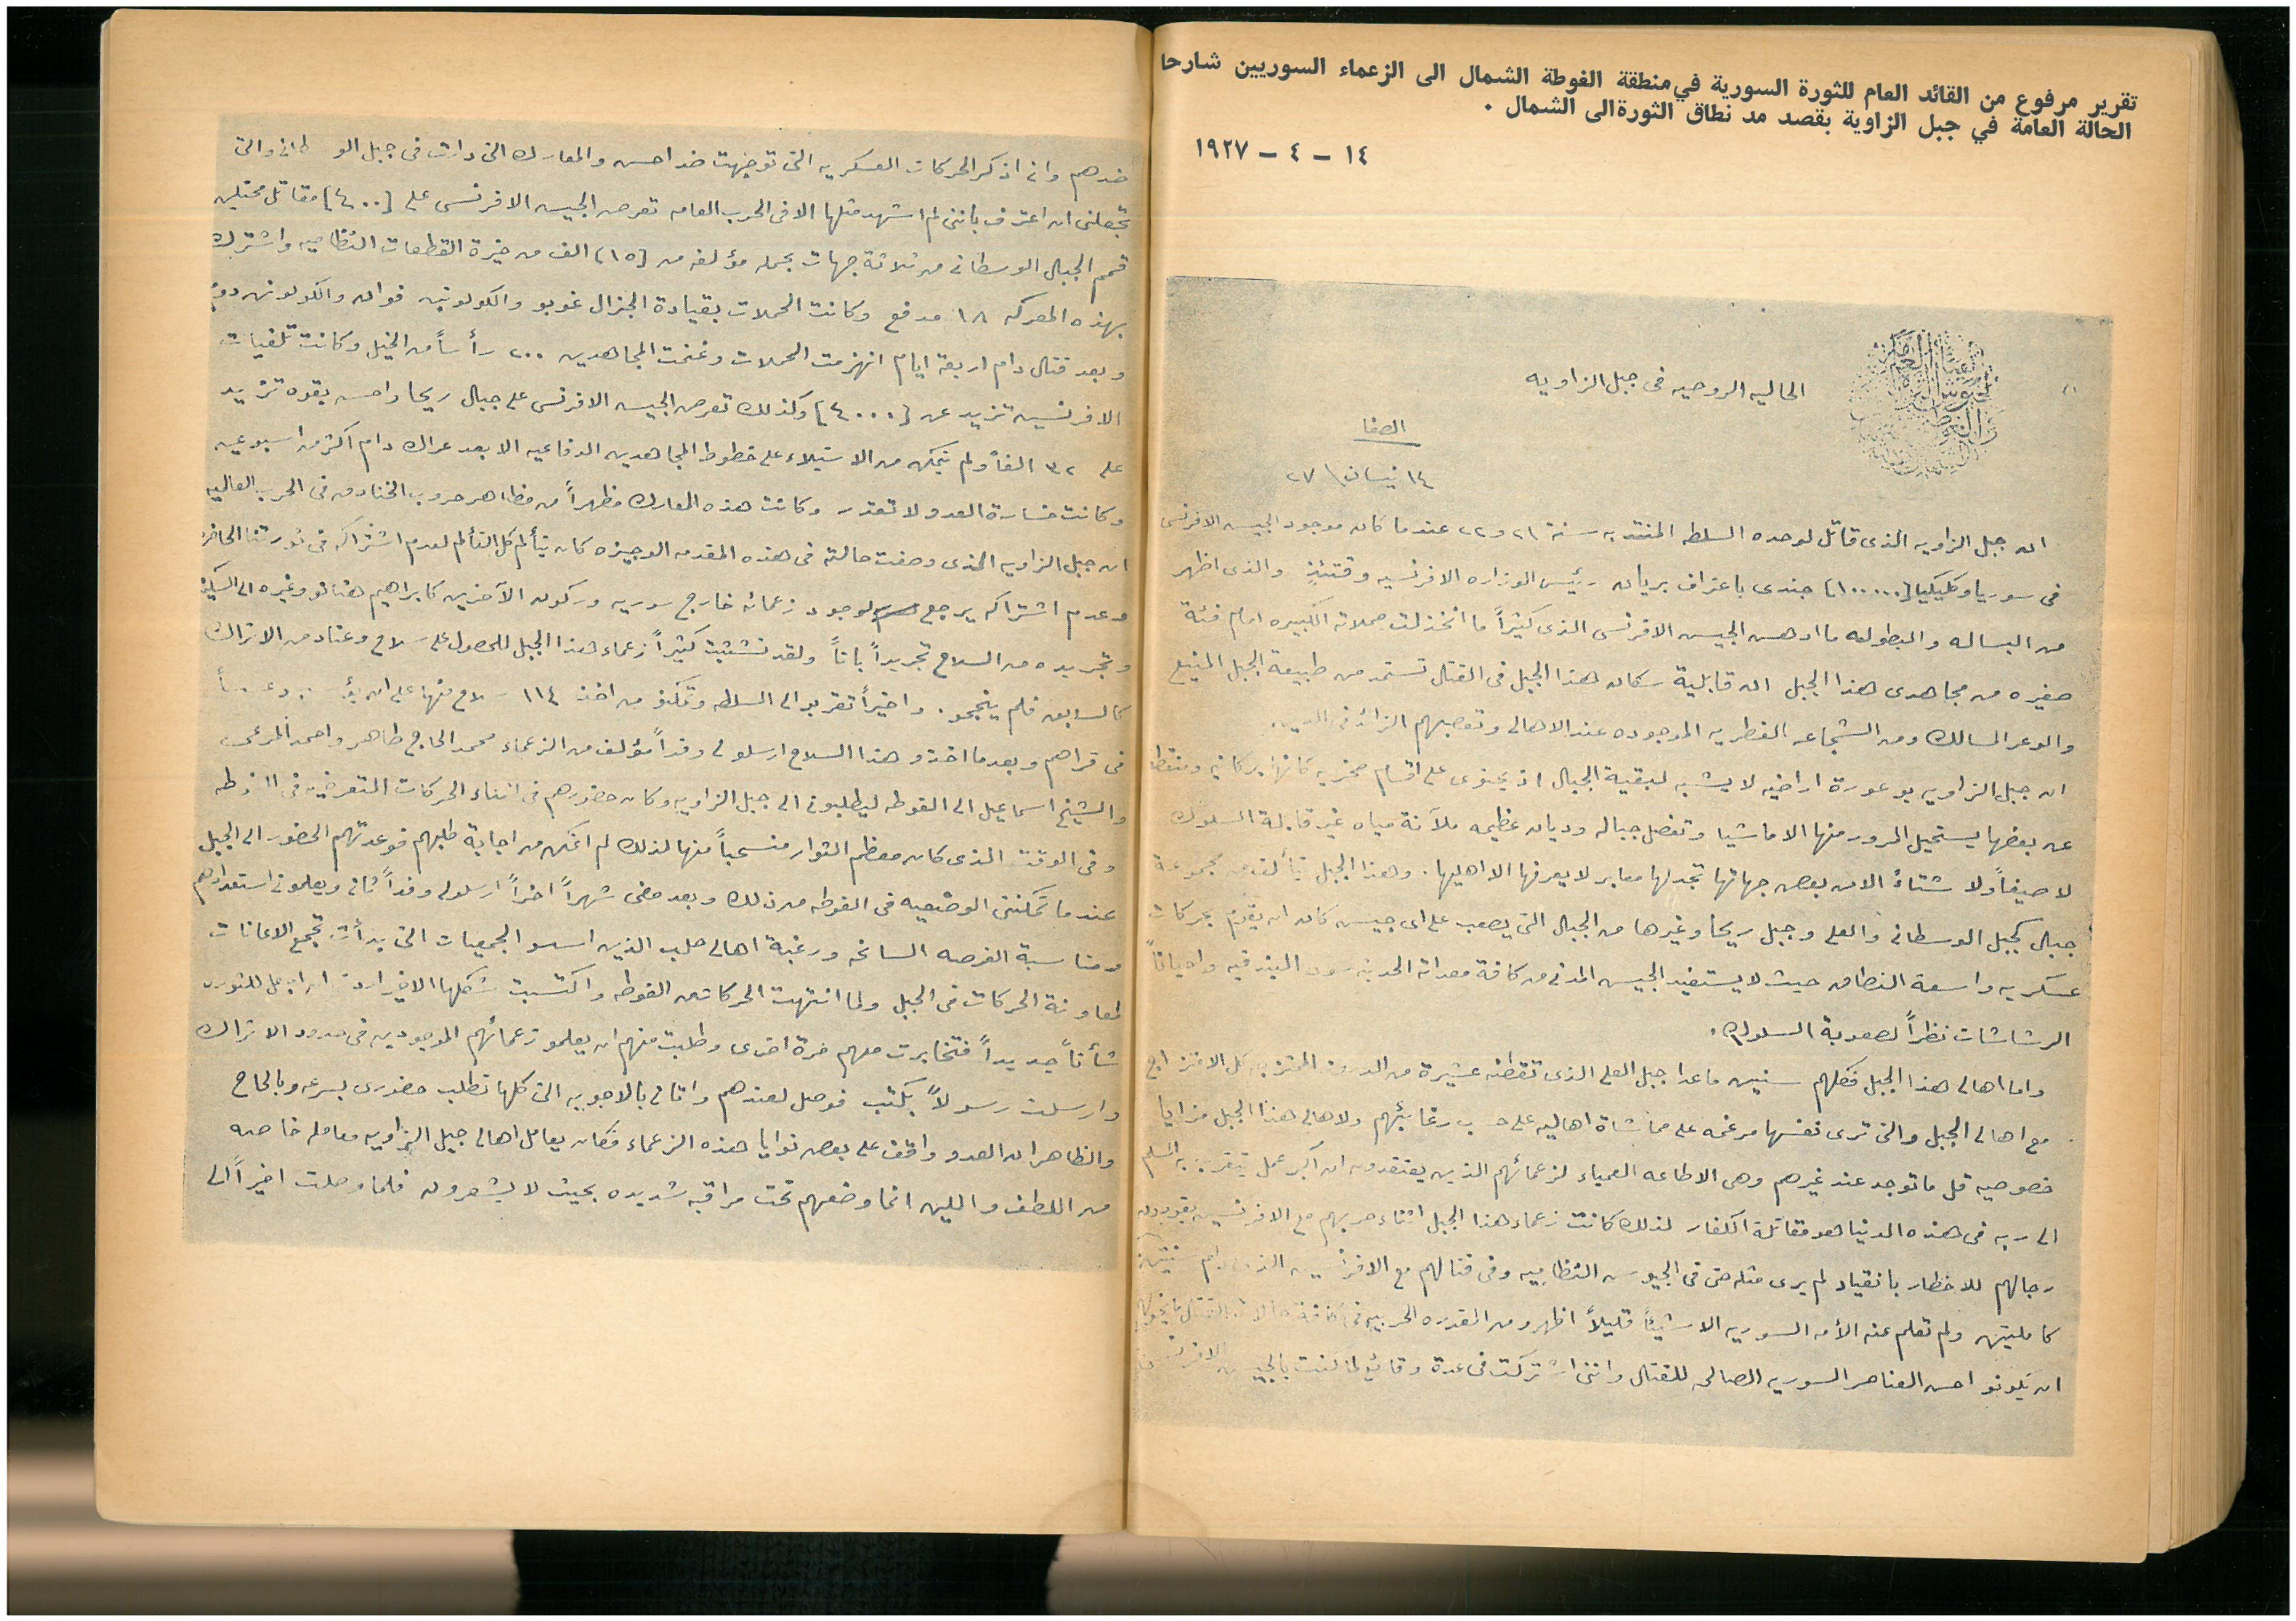 تقرير مرفوع من القائد العام للثورة السورية في منطقة الغوطة الشمال الى الزعماء السوريين شارحا
الحالة العامة في جبل الزاوية بقصد مد نطاق الثورة الى الشمال .
١٤ - ٤ - ١٩٢٧
الحاليه الروحيه فى جبل الزاويه
الصفا
١٤ نيسان \ ٢٧
ان جبل الزاويه الذى قاتل لوحده السلطه المنتدبه سنة ٢١ و ٢٢ عندما كان موجود الجيش الافرنسى
فى سوريا وكليكيا [١٠٠٠٠٠] جندى باعتراف بريان رئيس الوزاره الافرنسيه وقتئذٍ والذى اظهر
من البساله والبطوله ما ادهش الجيش الافرنسى الذى كثيراً ما انخذلت حملاته الكبيره امام فئة
صغيره من مجاهدى هذا الجبل ان قابلية سكان هذا الجبل فى القتال تستمد من طبيعة الجبل المنيع
والوعر المسالك ومن الشجاعه الفطريه الموجوده عند الاهالى وتعصبهم الزائد فى الدين.
ان جبل الزاويه بوعورة اراضيه لا يشبه لبقية الجبال اذ يحتوى على اقسام صخريه كانها بركانيه ومنقطعا
عن بعضها يستحيل المرور منها الا ماشيا وتفصل جباله وديان عظيمه ملآنة مياه غير قابلة السلوك
لا صيفاً ولا شتاءً الا من بعض جهاتها تجد لها معابر لا يعرفها الا اهليها. وهذا الجبل يتألف من مجموعة
جبال كجبل الوسطانى والعلى وجبل ريحا وغيرها من الجبال التى يصعب على اى جيش كان ان يقوم بحركات
عسكريه واسعة النطاق حيث لا يستفيد الجيش المدنى من كافة معداته الحديثه سوى البندقيه واحياناً
الرشاشات نظراً لصعوبة السلوك.
واما اهالى هذا الجبل فكلهم سنيين ما عدا جبل العلى الذى تقطنه عشيرة من الدروز الممتزجه كل الامتزاج
مع اهالى الجبل والتى ترى نفسها مرغمه على مماشاة اهاليه على حسب رغائبهم ولاهالى هذا الجبل مزايا
خصوصيه قل ما توجد عند غيرهم وهى الاطاعه العمياء لزعمائهم الذين يعتقدون ان اكبر عمل يتقرب به المسلم
الى ربه فى هذه الدنيا هو مقاتلة الكفار لذلك كانت زعماء هذا الجبل اثناء حربهم مع الافرنسيين يقودون
رجالهم للاخطار بانقياد لم يرى مثله حتى فى الجيوش النظاميه وفى قتالهم مع الافرنسيين الذى دام سنتين
كاملتين ولم تعلم عنه الأمه السوريه الا شيئاً قليلاً اظهرو من المقدره الحربيه فى كافة حالات القتال ما يخولهم
ان يكونو احسن العناصر السوريه الصالحه للقتال واننى اشتركت فى عدة وقائع لما كنت بالجيش الافرنسى
ضدهم وانى اذكر الحركات العسكريه التى توجهت ضد احسم والمعارك التى دارت فى جبل الوسطانى والتى
تجعلنى ان اعترف باننى لم اشهد مثلها الا فى الحرب العامه تعرض الجيش الافرنسى على [٤٠٠] مقاتل محتلين
قمم الجبال الوسطانى من ثلاثة جهات بحمله مؤلفه من [١٥] الف من خيرة القطعات النظاميه واشترك
بهذه المعركه ١٨ مدفع وكانت الحملات بقيادة الجنرال غوبو والكولونيل فوان والكولونيل دوم
وبعد قتال دام اربعة ايام انهزمت الحملات وغنمت المجاهدين ٢٠٠ رأساً من الخيل وكانت تلفيات
الافرنسيين تزيد عن [٤٠٠٠] وكذلك تعرض الجيش الافرنسى على جبال ريحا واحسم بقوه تزيد
على ٣٢ الفاً ولم يتمكن من الاستيلاء على خطوط المجاهدين الدفاعيه الا بعد عراك دام اكثر من اسبوعين
وكانت خسارة العدو لا تقدر وكانت هذه المعارك مظهراً من مظاهر حروب الخنادق فى الحرب العالميه
ان جبل الزاويه الذى وصفت حالته فى هذه المقدمه الوجيزه كان يتألم كل التألم لعدم اشتراكه فى ثورتنا الحاضره
وعدم اشتراكه يرجع لوجود زعمائه خارج سوريه وركون الآخرين كابراهيم هنانو وغيره الى السكينه
وتجريده من السلاح تجريداً باتاً ولقد تشبثت كثيراً زعماء هذا الجبل للحصول على سلاح وعتاد من الاتراك
كالسابق فلم ينجحو. واخيراً تقربو الى السلطه وتمكنو من اخذ ١١٤ سلاح منها على ان
فى قراهم وبعد ما اخذو هذا السلاح ارسلو لى وفداً مؤلف من الزعماء محمد الحاج طاهر واحمد المرعى
والشيخ اسماعيل الى الغوطه ليطلبونى الى جبل الزاويه وكان حضورهم فى اثناء الحركات التعرضيه فى الغوطه
وفى الوقت الذى كان معظم الثوار منسحباً منها لذلك لم اتمكن من اجابة طلبهم فوعدتهم الحضور الى الجبل
عندما تمكننى الوضعيه فى الغوطه من ذلك وبعد مضى شهراً اخراً ارسلو لى وفداً ثانى ويعلمونى استعدادهم
ومناسبة الفرصه السانحه ورغبة اهالى حلب الذين اسسو الجمعيات التى بدأت تجمع الاعانات
لمعاونة الحركات فى الجبل ولما انتهت الحركات من الغوطه واكتسبت شكلها الاخير اردت ان اجعل للثوره
شأناً جديداً فتخابرت معهم مرة اخرى وطلبت منهم ان يعلمو زعمائهم الموجودين فى حدود الاتراك
وارسلت رسولاً بكتب فوصل لعندهم واتانى بالاجوبه التى كلها تطلب حضورى بسرعه وبالحاح
والظاهر ان العدو واقف على بعض نوايا هذه الزعماء فكان يعامل اهالى جبل الزاويه معامله خاصه
من اللطف واللين انما وضعهم تحت مراقبه شديده بحيث لا يشعرون فلما وصلت اخيراً الى